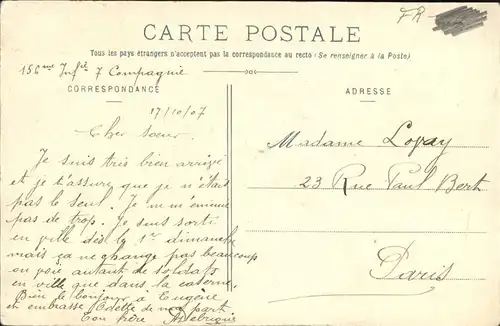 FR-
CARTE POSTALE
Tous les pays étrangers n'acceptent pas la correspondance au recto (Se renseigner à la Poste)
156me Infie 7 Compagnie
CORRESPONDANCE
17/10/07
Cher soeur.
Je suis très bien arrivé
et je t'assure que je n'étais
pas le seul. Je m'ennuie
pas de trop. Je suis sorti
en ville dès le 1er dimanche
mais ça ne change pas beaucoup
on voie autant de soldats
en ville que dans la caserne.
Bien le bonjour à Eugène
et embrasse Odette de ma part
Ton frère
ADRESSE
Madame Loray
23 Rue Paul Bert
Paris